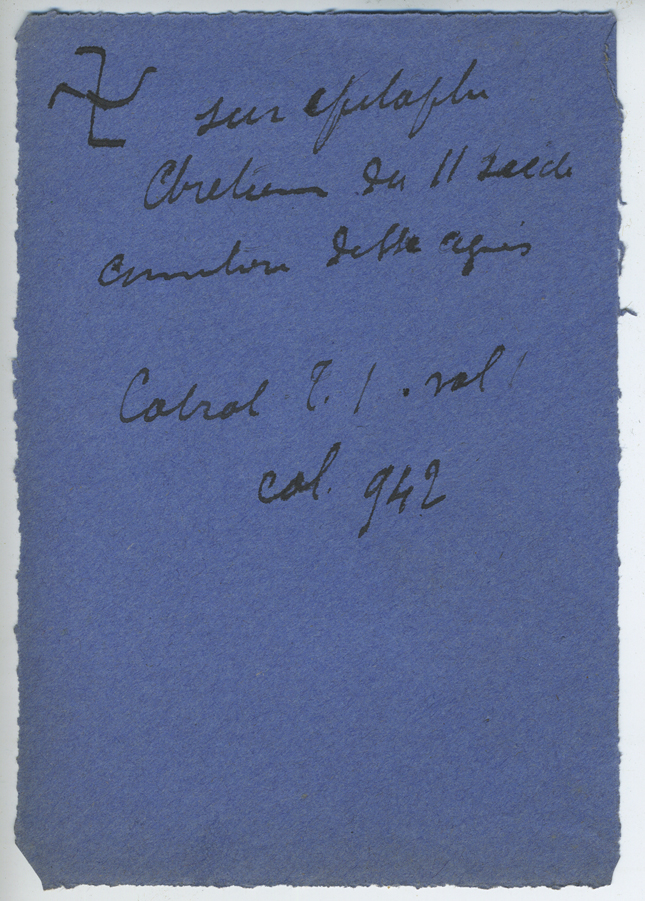 sur epitaphe
Chretienne du II siecle
cimetiere de Ste agnes
Cabrol T. 1. vol 1
col. 942